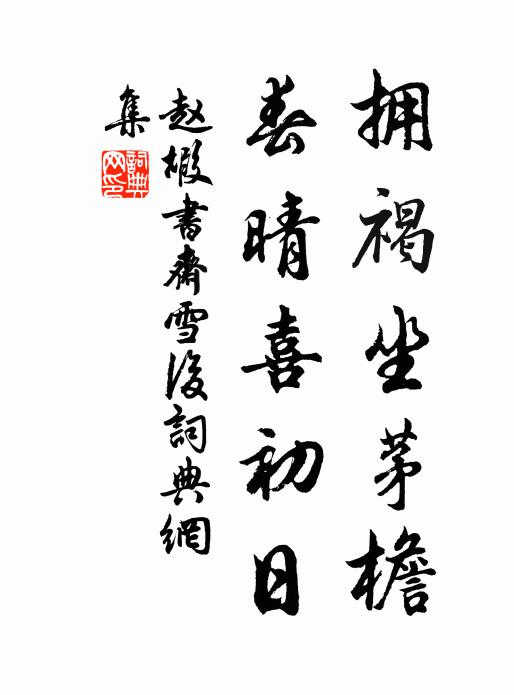 拥褐坐茅檐
春晴喜初日
赵嘏書齋雪後詞典網
集
詞典
网印